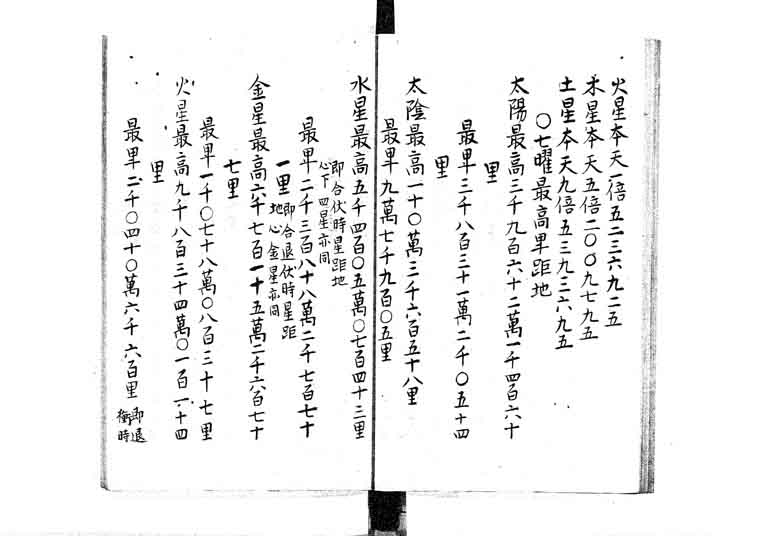 火星本天一倍五二三六九二五
木星本天五倍二〇〇九七九五
土星本天九倍五三九三六九五
〇七曜最高卑距地
太陽最高三千九百六十二萬一千四百六十
里
最卑三千八百三十一萬二千〇五十四
里
太陰最高一十〇萬三千六百五十八里
最卑九萬七千九百〇五里
水星最高五千四百〇五萬〇七百四十三里
即合伏時星距地
心下四星亦同
最卑二千三百八十八萬二千七百七十
一里
即合退伏時星距
地心金星亦同
金星最高六千七百一十五萬二千六百七十
七里
最卑一千〇七十八萬〇八百三十七里
火星最高九千八百三十四萬〇一百一十四
里
最卑二千〇四十〇萬六千六百里
即退
衝時